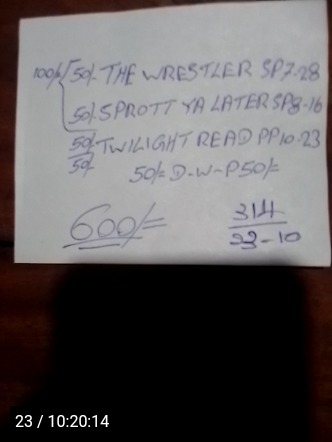 100/- 50/- THE WRESTLER SP7.28
50/- SPROTT YA LATER SP8-16
50/- TWILIGHT READ PP10.23
50/-
50/= D-W-P 50/=
600/=
314
23-10
23 / 10:20:14